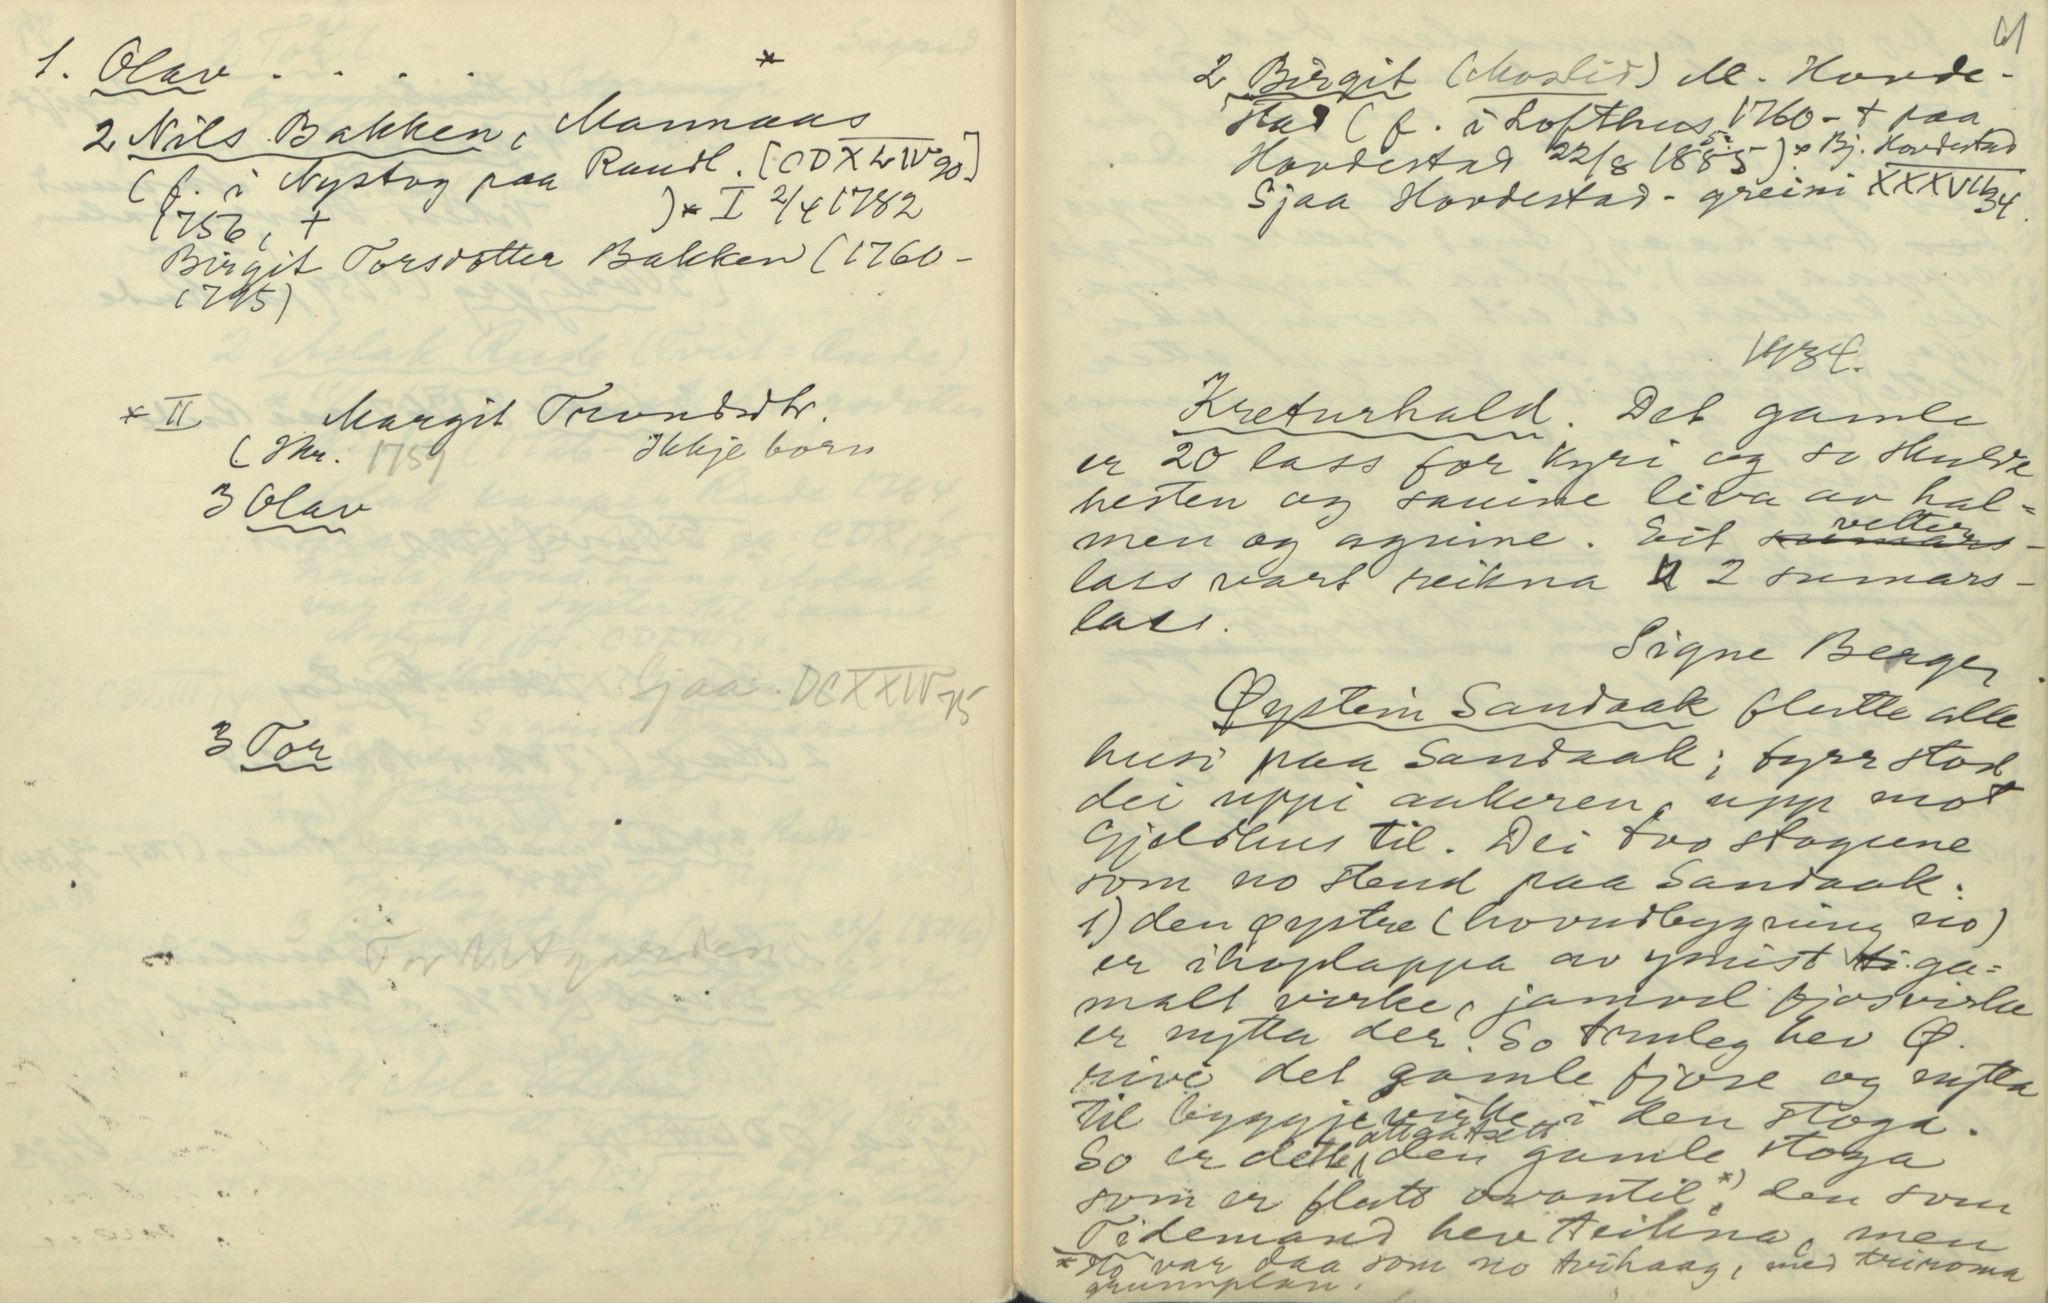 1. Olav . . . . *
2 Nils Bakken, Mannaas
(f. i Nystog paa Raudl. [CDXLIV 90.]
1756, + )* I 2/4 1782
Birgit Torsdotter Bakken (1760-
1795)
* II Margit Trondsdtr.
(Skr. 1759 Ikkje born
3 Olav
Sjaa DCXXIV 75
3 Tor
Tor Utgarden
61
2 Birgit (Moslid) M. Hovde-
stad (f. i Lofthus 1760 - + paa
Hovdestad 22/8 1855) * Bj. Hovdestad
Sjaa Hovdestad-greini XXXVII 34.
1934.
Kreturhald. Det gamle
er 20 lass for kyri og so skulde
hesten og sauine liva av hal=
men og agnine. Eit vetter-
lass vart rekna 2 sumars-
lass.
Signe Berge.
Øystein Sandaak flutte alle
husi paa Sandaak; fyrr stod
dei uppi aakeren, upp mot
Gjeldhus til. Dei two stogune
som no stend paa Sandaak.
1) den øystre (hovudbygning no)
er ihoplappa av ymist ga=
malt virke, jamvel fjosvirke
er nytta der. So truleg hev Ø.
rive det gamle fjose og nytta
til byggjevirke i den stoga.
So er dette attgåtsett den gamle stoga
som er flutt ovantil *) den som
Tidemand hev teikna, men
* Ho var daa som no tvihaag, med triroma
grunnplan.